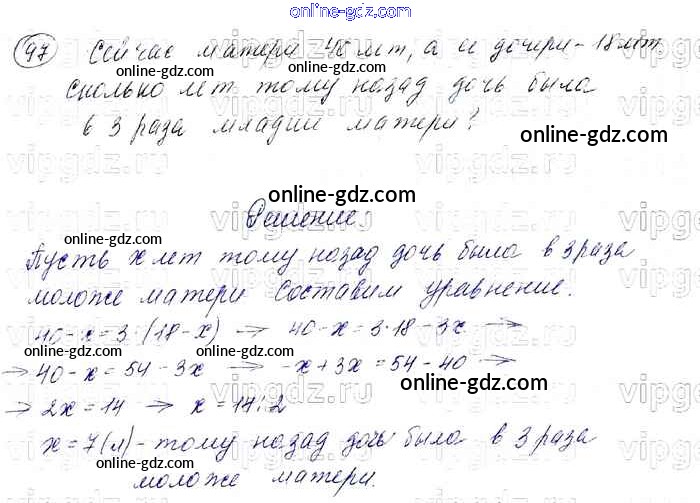 online-gdz.com
97 Сейчас матери 40 лет, а её дочери - 18 лет.
online-gdz.com
Сколько лет тому назад дочь была
в 3 раза младше матери?
online-gdz.com
online-gdz.com
Решение:
online-gdz.com
Пусть x лет тому назад дочь была в 3 раза
моложе матери. Составим уравнение.
online-gdz.com
40-x=3·(18-x) → 40-x=3·18-3x →
online-gdz.com
online-gdz.com
→ 40-x=54-3x → -x+3x=54-40 →
online-gdz.com
→ 2x=14 → x=14:2
online-gdz.com
x=7(л)-тому назад дочь была в 3 раза
моложе матери.
online-gdz.com
vipgdz